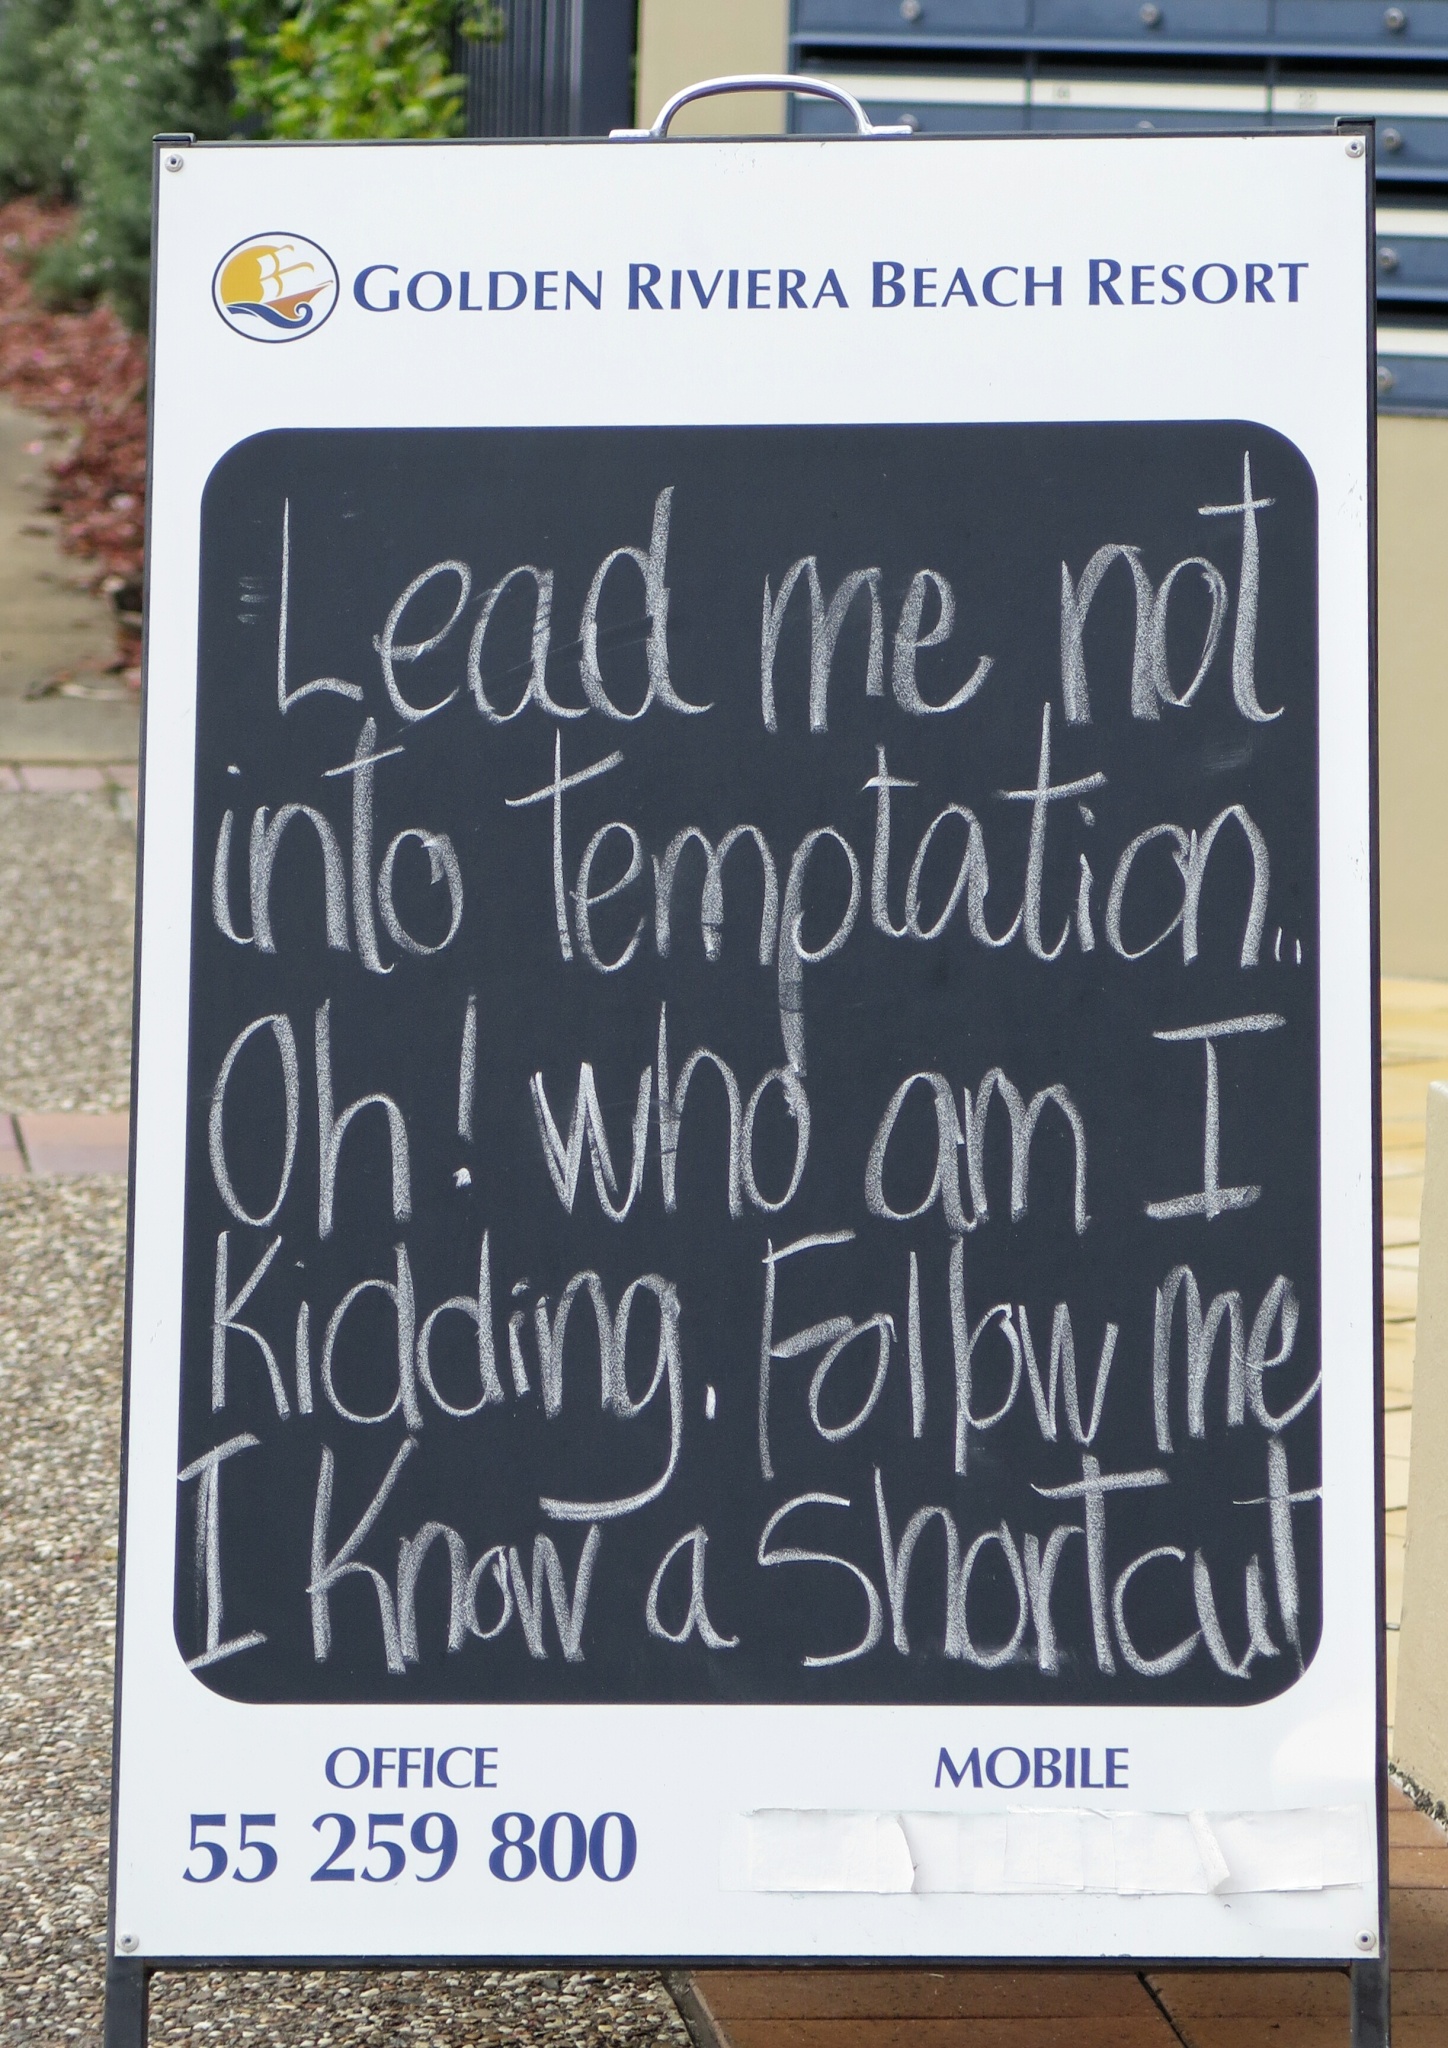 GOLDEN RIVIERA BEACH RESORT
Lead me not
into temptation..
Oh! who am I
Kidding. Follow me
I Know a Shortcut
OFFICE MOBILE
55 259 800